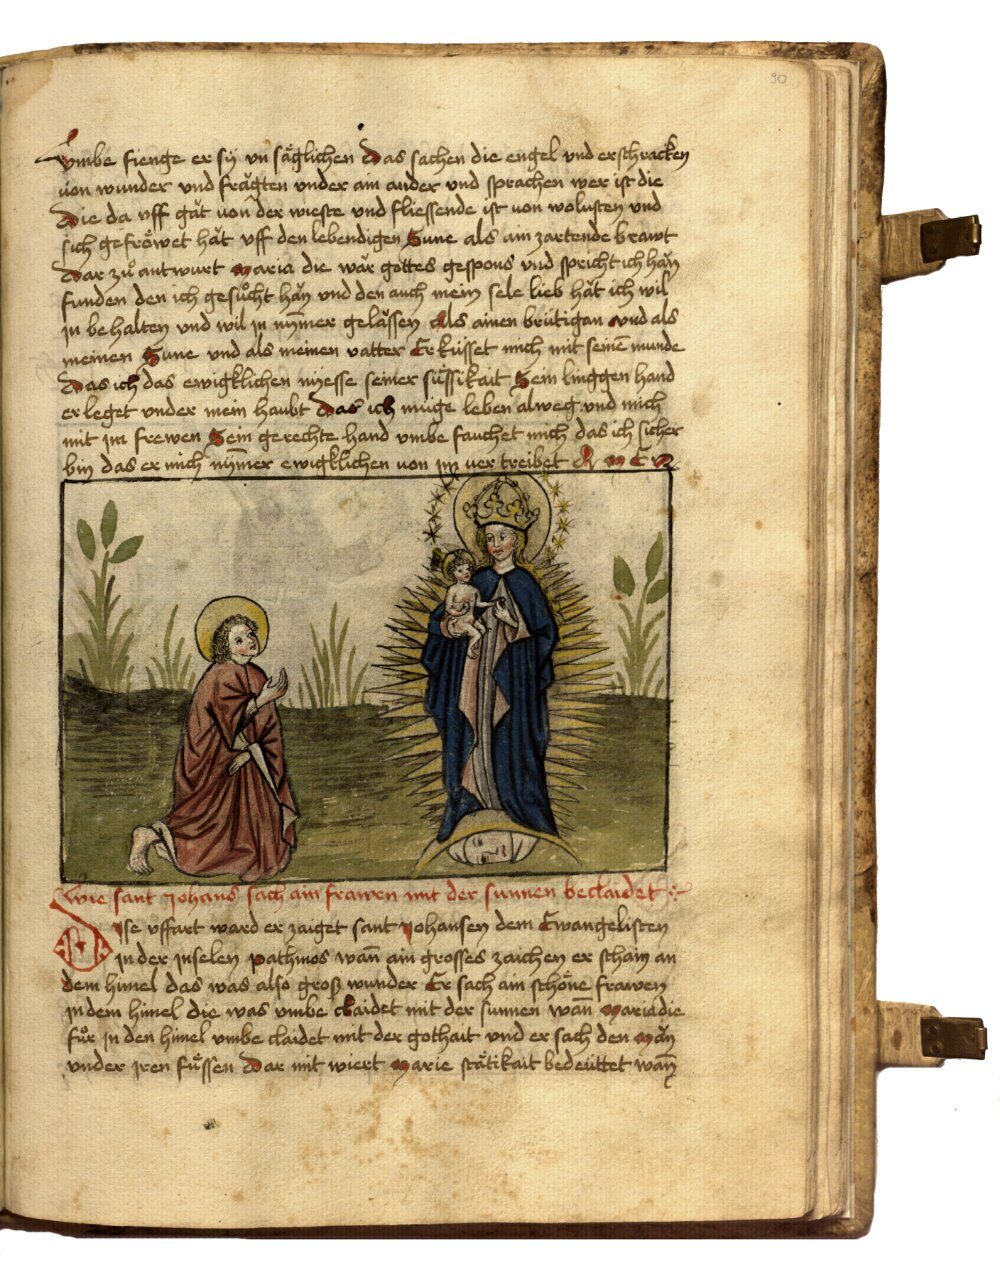 90
vmbe fienge er sÿ vn säglichen Das sachen die engel vnd erschracken
von wunder vnd frăgten vnder ain ander vnd sprachen wer ist die
Die da vff găt von der wieste vnd fliessende ist von wolusten vnd
sich gefröwet hăt vff den lebendigen Sune als ain zartende brawt
Dar zů antwurt Maria die wăr gottes gespons vnd spricht ich hăn
funden den ich gesůcht hăn vnd den auch mein sele lieb hăt ich wil
jn behalten vnd wil jn nÿm̄er gelăssen Als ainen brútigan vnd als
meinen Sune vnd als meinen vatter Er kússet mich mit seinē munde
Das ich das ewigklichen niesse seiner sússikait Sein linggen hand
er leget vnder mein haubt Das ich múge leben alweg vnd mich
mit jm frewen Sein gerechte hand vmbe fauchet mich das ich sicher
bin das er mich nÿm̄er ewigklichen von jm ver treibet A M E N
Wie sant Johans sach ain frawen mit der sunnen beclaidet
Dise vffart ward er zaiget sant Johansen dem Ewangelisten
in der jnselen pathmos wan̄ ain grosses zaichen er schain an
dem himel das was also groß wunder Er sach ain schöne frawen
in dem himel die was vmbe claidet mit der sunnen wan̄ Maria die
fůr in den himel vmbe claidet mit der gothait vnd er sach den măn
vnder jren fůssen Dar mit wiert Marie stätikait bedeúttet wan̄